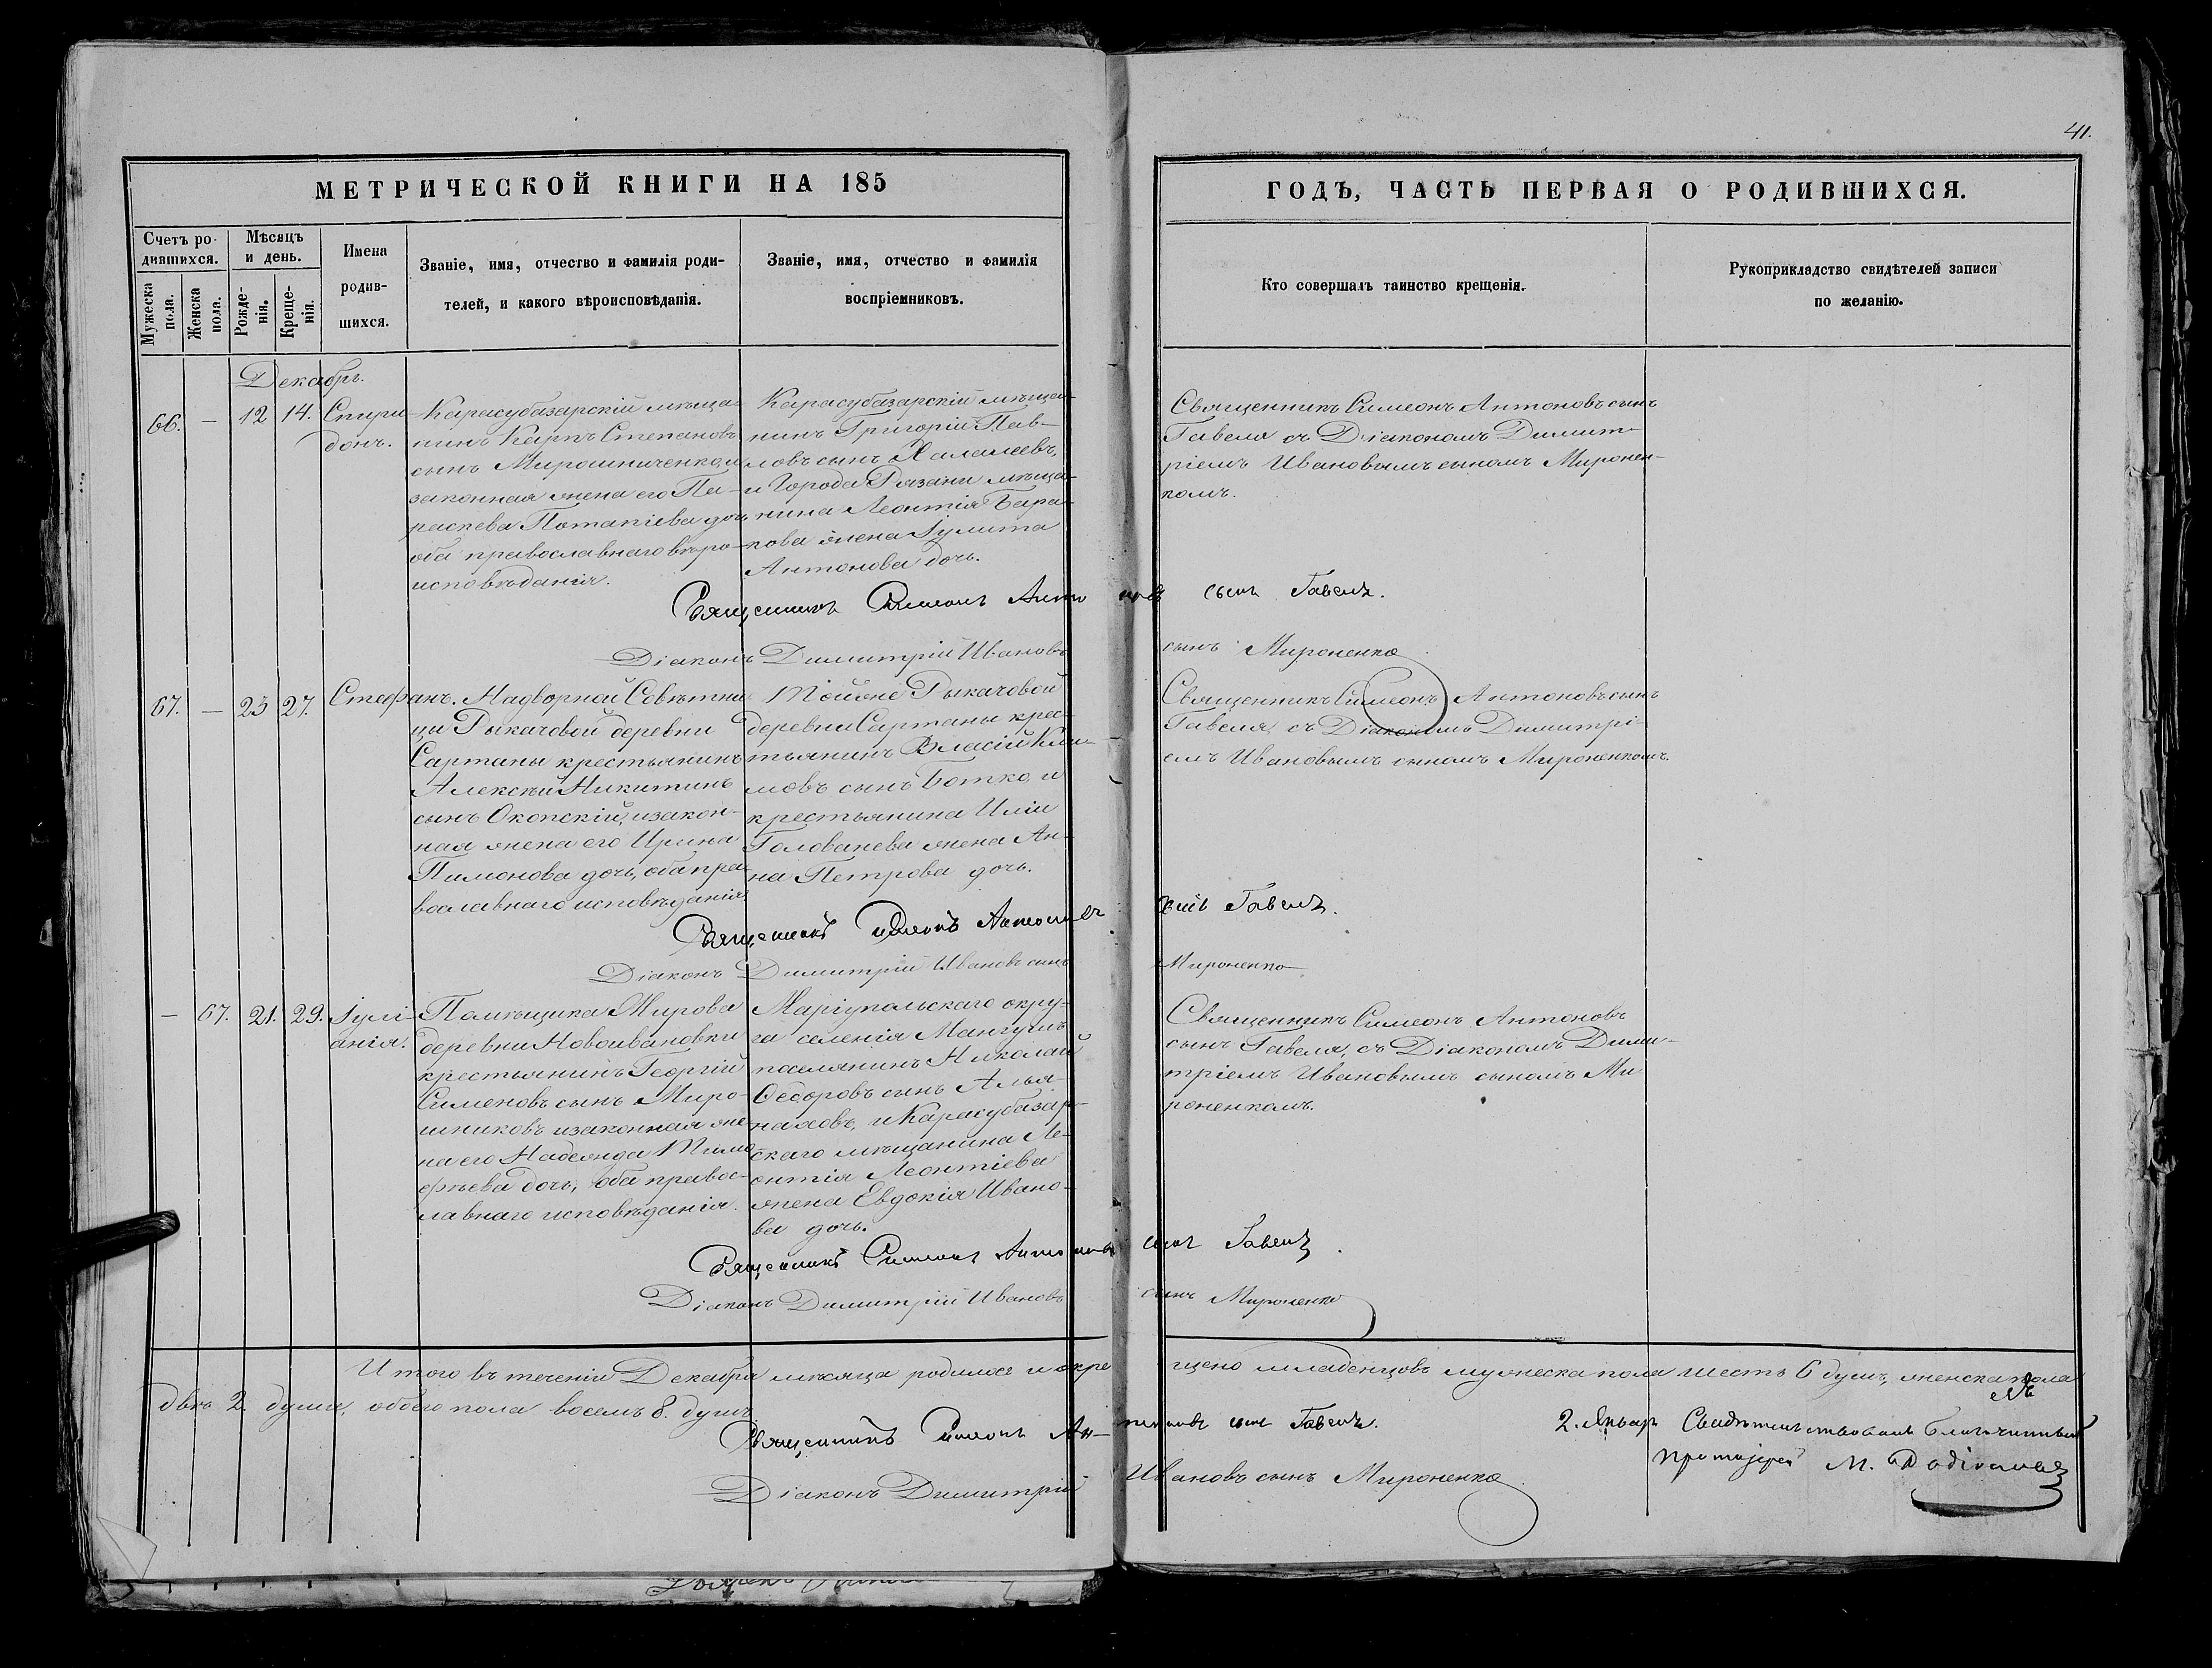 41.
МЕТРИЧЕСКОЙ КНИГИ НА 185
ГОДЪ, ЧАСТЬ ПЕРВАЯ О РОДИВШИХСЯ.
Счетъ ро-
дившихся.
Мужеска пола.
Женска пола.
Мѣсяцъ
и день.
Рожде-
нія.
Креще-
нія.
Имена
родив-
шихся.
Званіе, имя, отчество и фамилія роди-
телей, и какого вѣроисповѣданія.
Званіе, имя, отчество и фамилія
воспріемниковъ.
Кто совершалъ таинство крещенія.
Рукоприкладство свидѣтелей записи
по желанію.
Декабрь.
66. — 12 14.
Спири-
донъ.
Карасубазарскій мѣща-
нинъ Карпъ Степановъ
сынъ Мирошниченко, и
законная жена его Па-
раскева Потапіева дочь
оба православнаго вѣро-
исповѣданія.
Карасубазарскій мѣща-
нинъ Григорій Пав-
ловъ сынъ Халалеевъ,
и Города Рязани мѣща-
нина Леонтія Бара-
кова жена Іулита
Антонова дочь.
Священникъ Симеонъ Антоновъ сынъ
Гавеля съ Діакономъ Димит-
ріемъ Ивановымъ сыномъ Миронен-
комъ.
Священникъ Симеонъ Антоновъ сынъ Гавеля.
Діаконъ Димитрій Ивановъ сынъ Мироненко
67. — 25 27.
Стефанъ.
Надворной Совѣтни-
цы Рыкачовой деревни
Сартаны крестьянинъ
Алексѣй Никитинъ
сынъ Окопскій, и закон-
ная жена его Ирина
Пимонова дочь, оба пра-
вославнаго исповѣданія.
Тойже Рыкачовой
деревни Сартаны крес-
тьянинъ Власій Кли-
мовъ сынъ Ботко, и
крестьянина Иліи
Голованева жена Ан-
на Петрова дочь.
Священникъ Симеонъ Антоновъ сынъ
Гавеля, съ Діакономъ Димитрі-
емъ Ивановымъ сыномъ Мироненкомъ.
Священникъ Симеонъ Антоновъ сынъ Гавеля.
Діаконъ Димитрій Ивановъ сынъ Мироненко
— 67. 21. 29.
Іулі-
анія.
Помѣщика Мирова
деревни Новоивановки
крестьянинъ Георгій
Сименовъ сынъ Миро-
шниковъ и законная же-
на его Надежда Тимо-
фѣева дочь, оба правос-
лавнаго исповѣданія.
Маріупольскаго окру-
га селенія Мангушъ
поселянинъ Николай
Ѳедоровъ сынъ Алья-
наховъ, и Карасубазар-
скаго мѣщанина Ле-
онтія Леонтіева
жена Евдокія Ивано-
ва дочь.
Священникъ Симеонъ Антоновъ
сынъ Гавеля, съ Діакономъ Дими-
тріемъ Ивановымъ сыномъ Ми-
роненкомъ.
Священникъ Симеонъ Антоновъ сынъ Гавеля.
Діаконъ Димитрій Ивановъ сынъ Мироненко
Итого въ теченіи Декабря мѣсяца родилось и окрещено младенцовъ мужеска пола шесть 6 душъ, женска пола
двѣ 2. души, обоего пола восемь 8. душъ.
Священникъ Симеонъ Антоновъ сынъ Гавеля.
Діаконъ Димитрій Ивановъ сынъ Мироненко
2. Январ Свидѣтельствовалъ Благочинный
Протоіерей М.